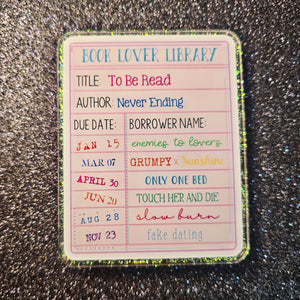 BOOK LOVER LIBRARY
TITLE: To Be Read
AUTHOR: Never Ending
DUE DATE: BORROWER NAME:
JAN 15 enemies to lovers
MAR 07 GRUMPY x Sunshine
APRIL 30 ONLY ONE BED
JUN 20 TOUCH HER AND DIE
AUG 28 slow burn
NOV 23 fake dating